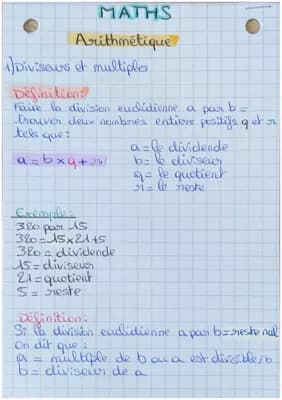 MATHS
Arithmétique
1) Diviseurs et multiples
Définition:
Faire la division euclidienne a par b =
trouver deux nombres entiers positifs q et r
tels que:
a = le dividende
a = b x q + r
b = le diviseur
q = le quotient
r = le reste
Exemple:
320 par 15
320 = 15 x 21 + 5
320 = dividende
15 = diviseur
21 = quotient
5 = reste
Définition:
Si la division euclidienne a par b = reste nul
On dit que:
a = multiple de b ou a est divisible/b
b = diviseur de a